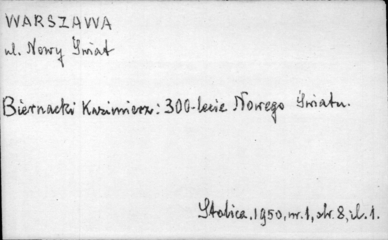 WARSZAWA
ul. Nowy Świat
Biernacki Kazimierz: 300-lecie Nowego Światu.
Stolica. 1950, nr. 1, str. 8, il. 1.